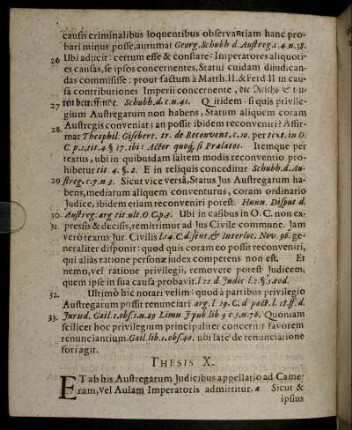 causis criminalibus loquentibus observatiam hanc pro-
bari minus posse, autumat Georg. Schubh d. Austreg. c. 4. n. 38.
26 Ubi adjicit: certum esse & constare: Imperatores aliquoti-
es causas, se ipsos concernentes, Statui cuidam dijudican-
das commisisse: prout factum à Matth. II. & Ferd II in cau-
sa contributiones Imperii concernente,
27 Schubh. d. c. n. 41. Quid idem si quis privile-
gium Austregarum non habens, Statum aliquem coram
28. Austregis conveniat: an posse ibidem reconveniri? Affir-
mat Theophil. Gisebert. tr. de Reconvent. c. 10. per text. in O.
C. p. 2. tit. 4. § 17. ibi: Actor quoq; si Prælatus. Itemque per
textus, ubi in quibusdam saltem modis reconventio pro-
hibetur tit. 4. §. 2. E in reliquis conceditur Schubh. d. Au-
29. streg. c. 7. n 3. Sicut vice versâ, Status Jus Austregarum ha-
bens, mediatum aliquem conventurus, coram ordinario
Judice, ibidem etiam reconveniri potest. Hunn. Disput d.
30. Austreg. arg tit. ult. O. C p. 3. Ubi in casibus in O. C. non ex-
31. pressis & decisis, remittimur ad Jus Civile commune. Jam
verò textus Jur. Civilis l. 14. C. d. sent. & Interloc. Nov. 96. ge-
neraliter disponit: quod quis coram eo possit reconveniri,
qui aliàs ratione personæ judex competens non est. Et
nemo, vel ratione privilegii, removere potest Judicem,
quem ipse in sua causa probavit. l 22. d. Judic l. 2. § 5. eod.
32. Ultimò hic notari velim: quod à partibus privilegio
Austregarum possit renunciari arg. l. 29. C. d pact. l. 12. ff. d.
33. Jurisd. Gail. 1. obs. 1. n. 29 Limn J pub. lib 9 c. 5. n. 76. Quoniam
scilicet hoc privilegium principaliter concernit favorem
renunciantium. Gail. lib. 1. obs. 40. ubi latè de renunciatione
fori agit.
THESIS X.
ET ab his Austregarum Judicibus appellatio ad Came-
ram, vel Aulam Imperatoris admittitur. a Sicut &
ipsius